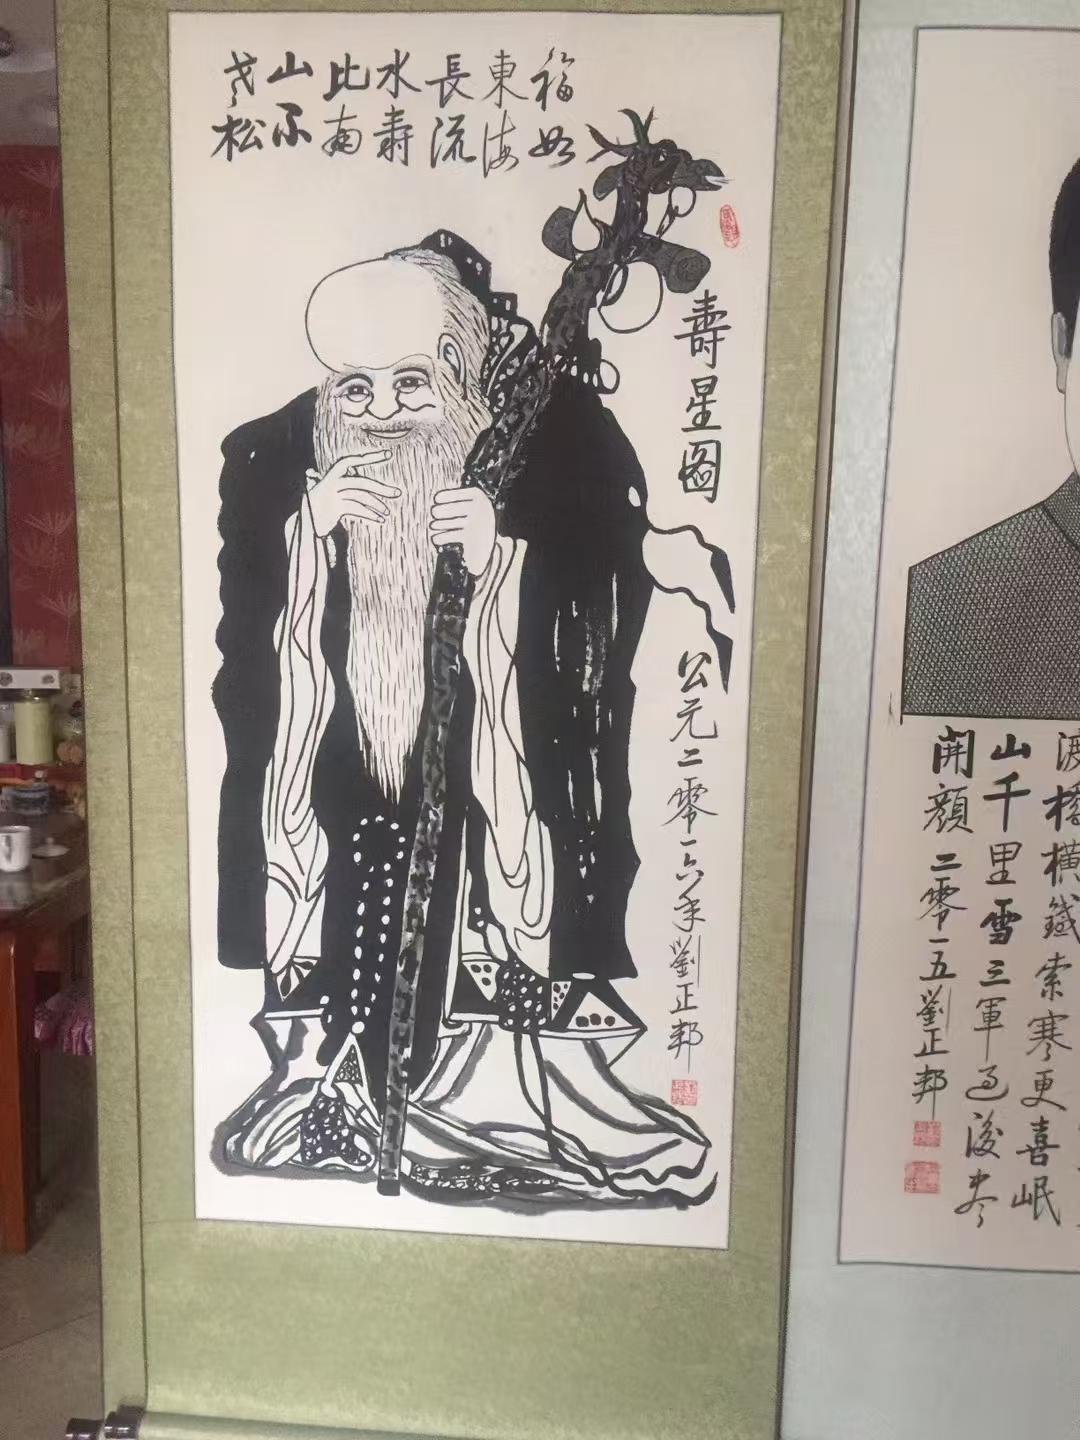 福如
東海
長流
水壽
比南
山不
老松
壽星圖
公元二零一六年劉正邦
渡橋橫鐵索寒更喜岷
山千里雪三軍過後盡
開顏 二零一五劉正邦